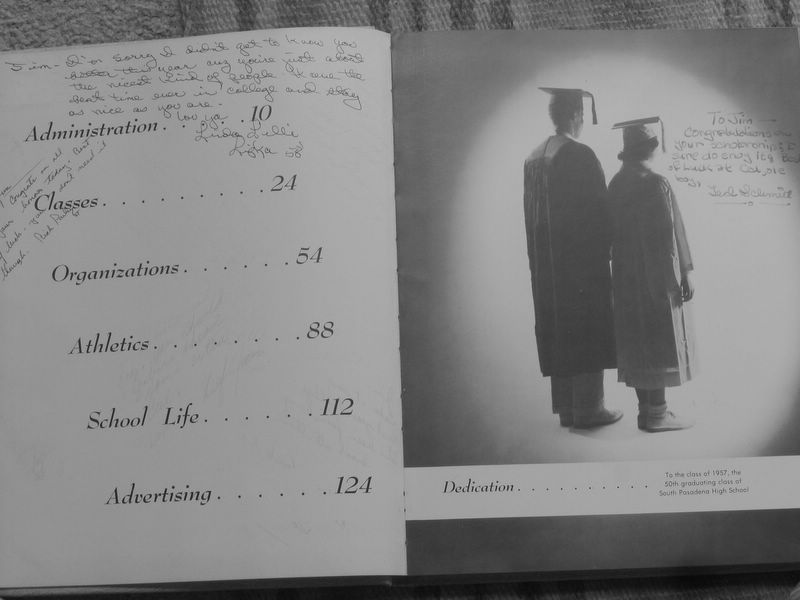 Jim - I'm sorry I didn't get to know you
this year cuz you're just about
the nicest kind of people. Have the
best time ever in college and stay
as nice as you are.
Luv ya
Linda
58
Administration . . . . . 10
Congrats on all
your honors today. Best
of luck - you don't need it
though. Dick
Classes . . . . . . . . 24
Organizations . . . . . . 54
Athletics . . . . . . . . 88
School Life . . . . . . 112
Advertising . . . . . . 124
To Jim —
Congratulations on
your scholarship, I
sure do envy it. Best
of luck at Cal, ole
boy,
Ted Schmitt
Dedication . . . . . . . . . .
To the class of 1957, the
50th graduating class of
South Pasadena High School